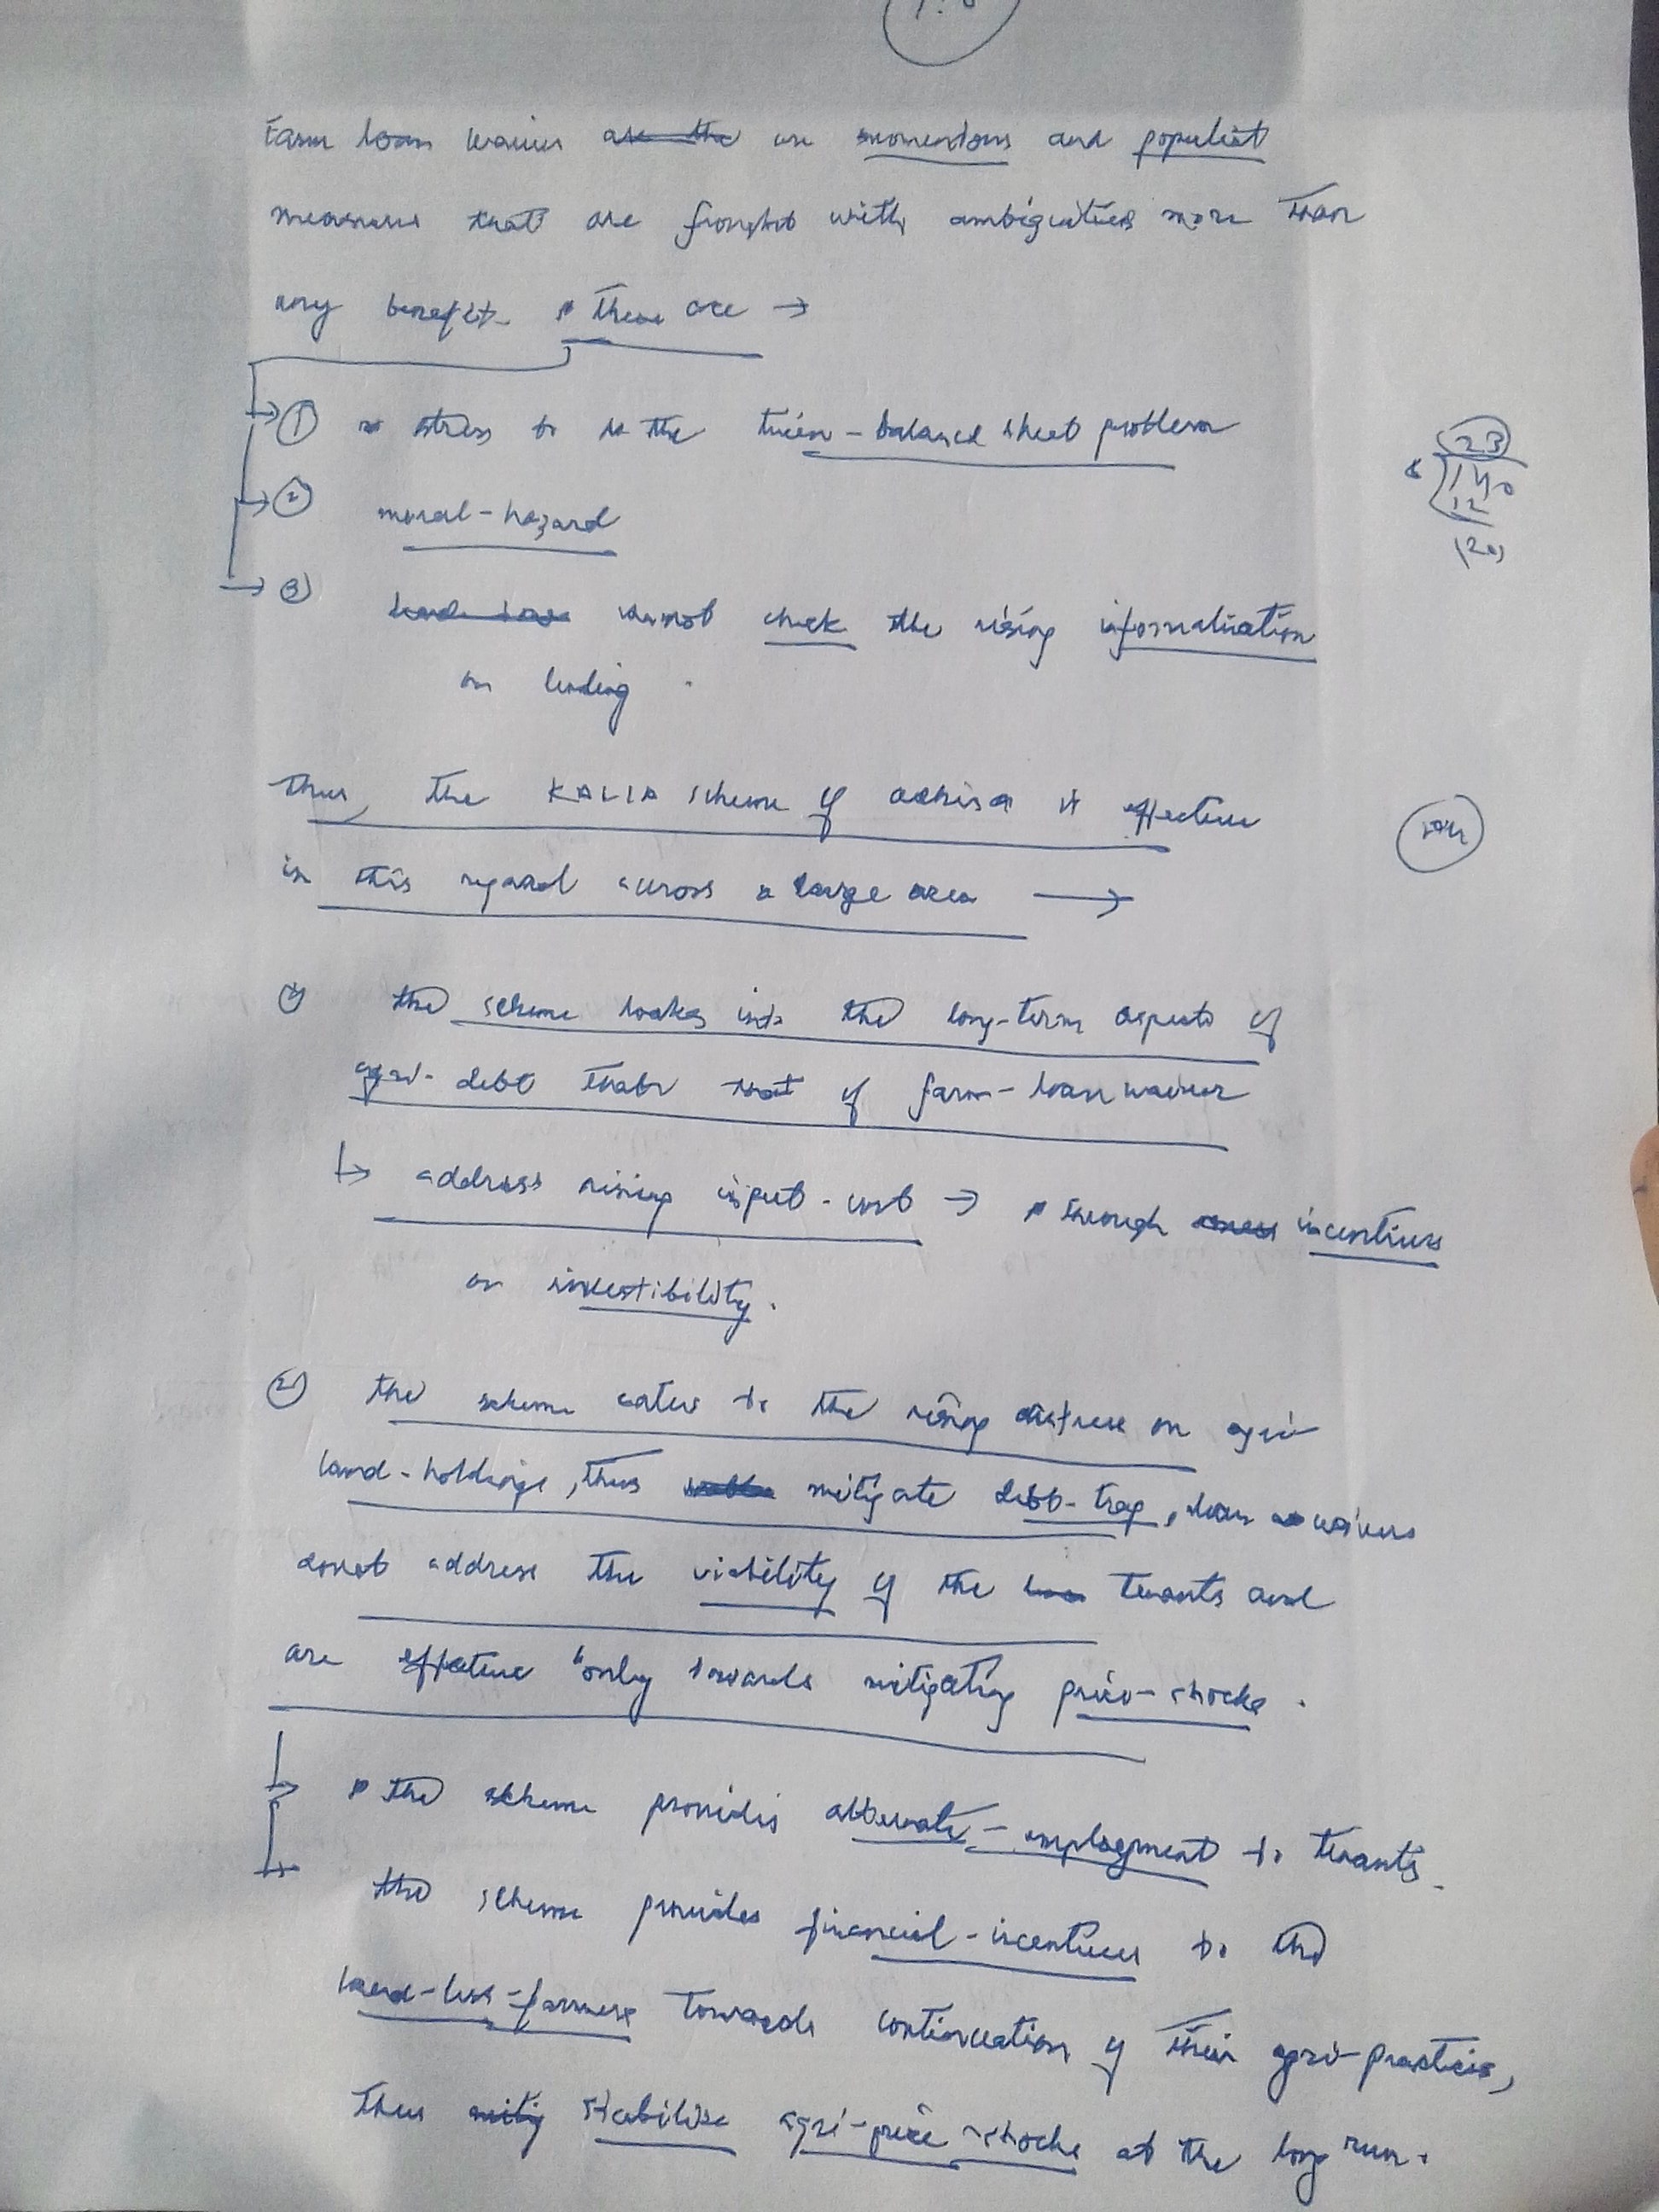 Farm loan waiver are momentous and populist
measures that are fraught with ambiguities more than
any benefit. these are →
→ ① stress to the twin-balance sheet problem
→ ② moral-hazard
→ ③ cannot check the rising informalisation
on lending.
23
6 140
12
(20)
Thus, the KALIA scheme of odhisa is effective
in this regard across a large area →
① the scheme looks into the long-term aspects of
agri-debt than that of farm-loan waiver
↳ address rising input-cost → through incentives
on investibility.
② the scheme cater to the rising distress on agri
land-holdings, thus mitigate debt-trap, loan waivers
donot address the viability of the tenants and
are effective "only towards mitigating price-shocks.
→ the scheme provides alternate-employment to tenants.
→ the scheme provides financial-incentives to the
land-less-farmers towards continuation of their agri-practices,
thus stabilise agri-price shocks at the long run.